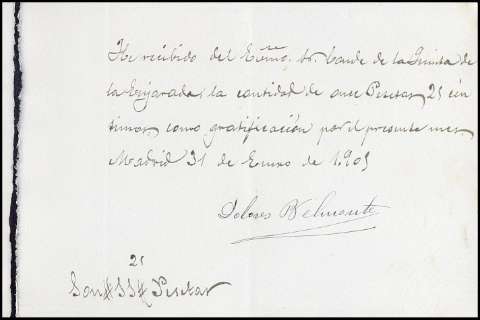 He recibido del Exmo. Sr. Conde de la Quinta de
la Enjarada, la cantidad de once Pesetas 25 cén
timos como gratificación por el presente mes
Madrid 31 de Enero de 1.905
Dolores Belmonte
25
Son # 11 # Pesetas